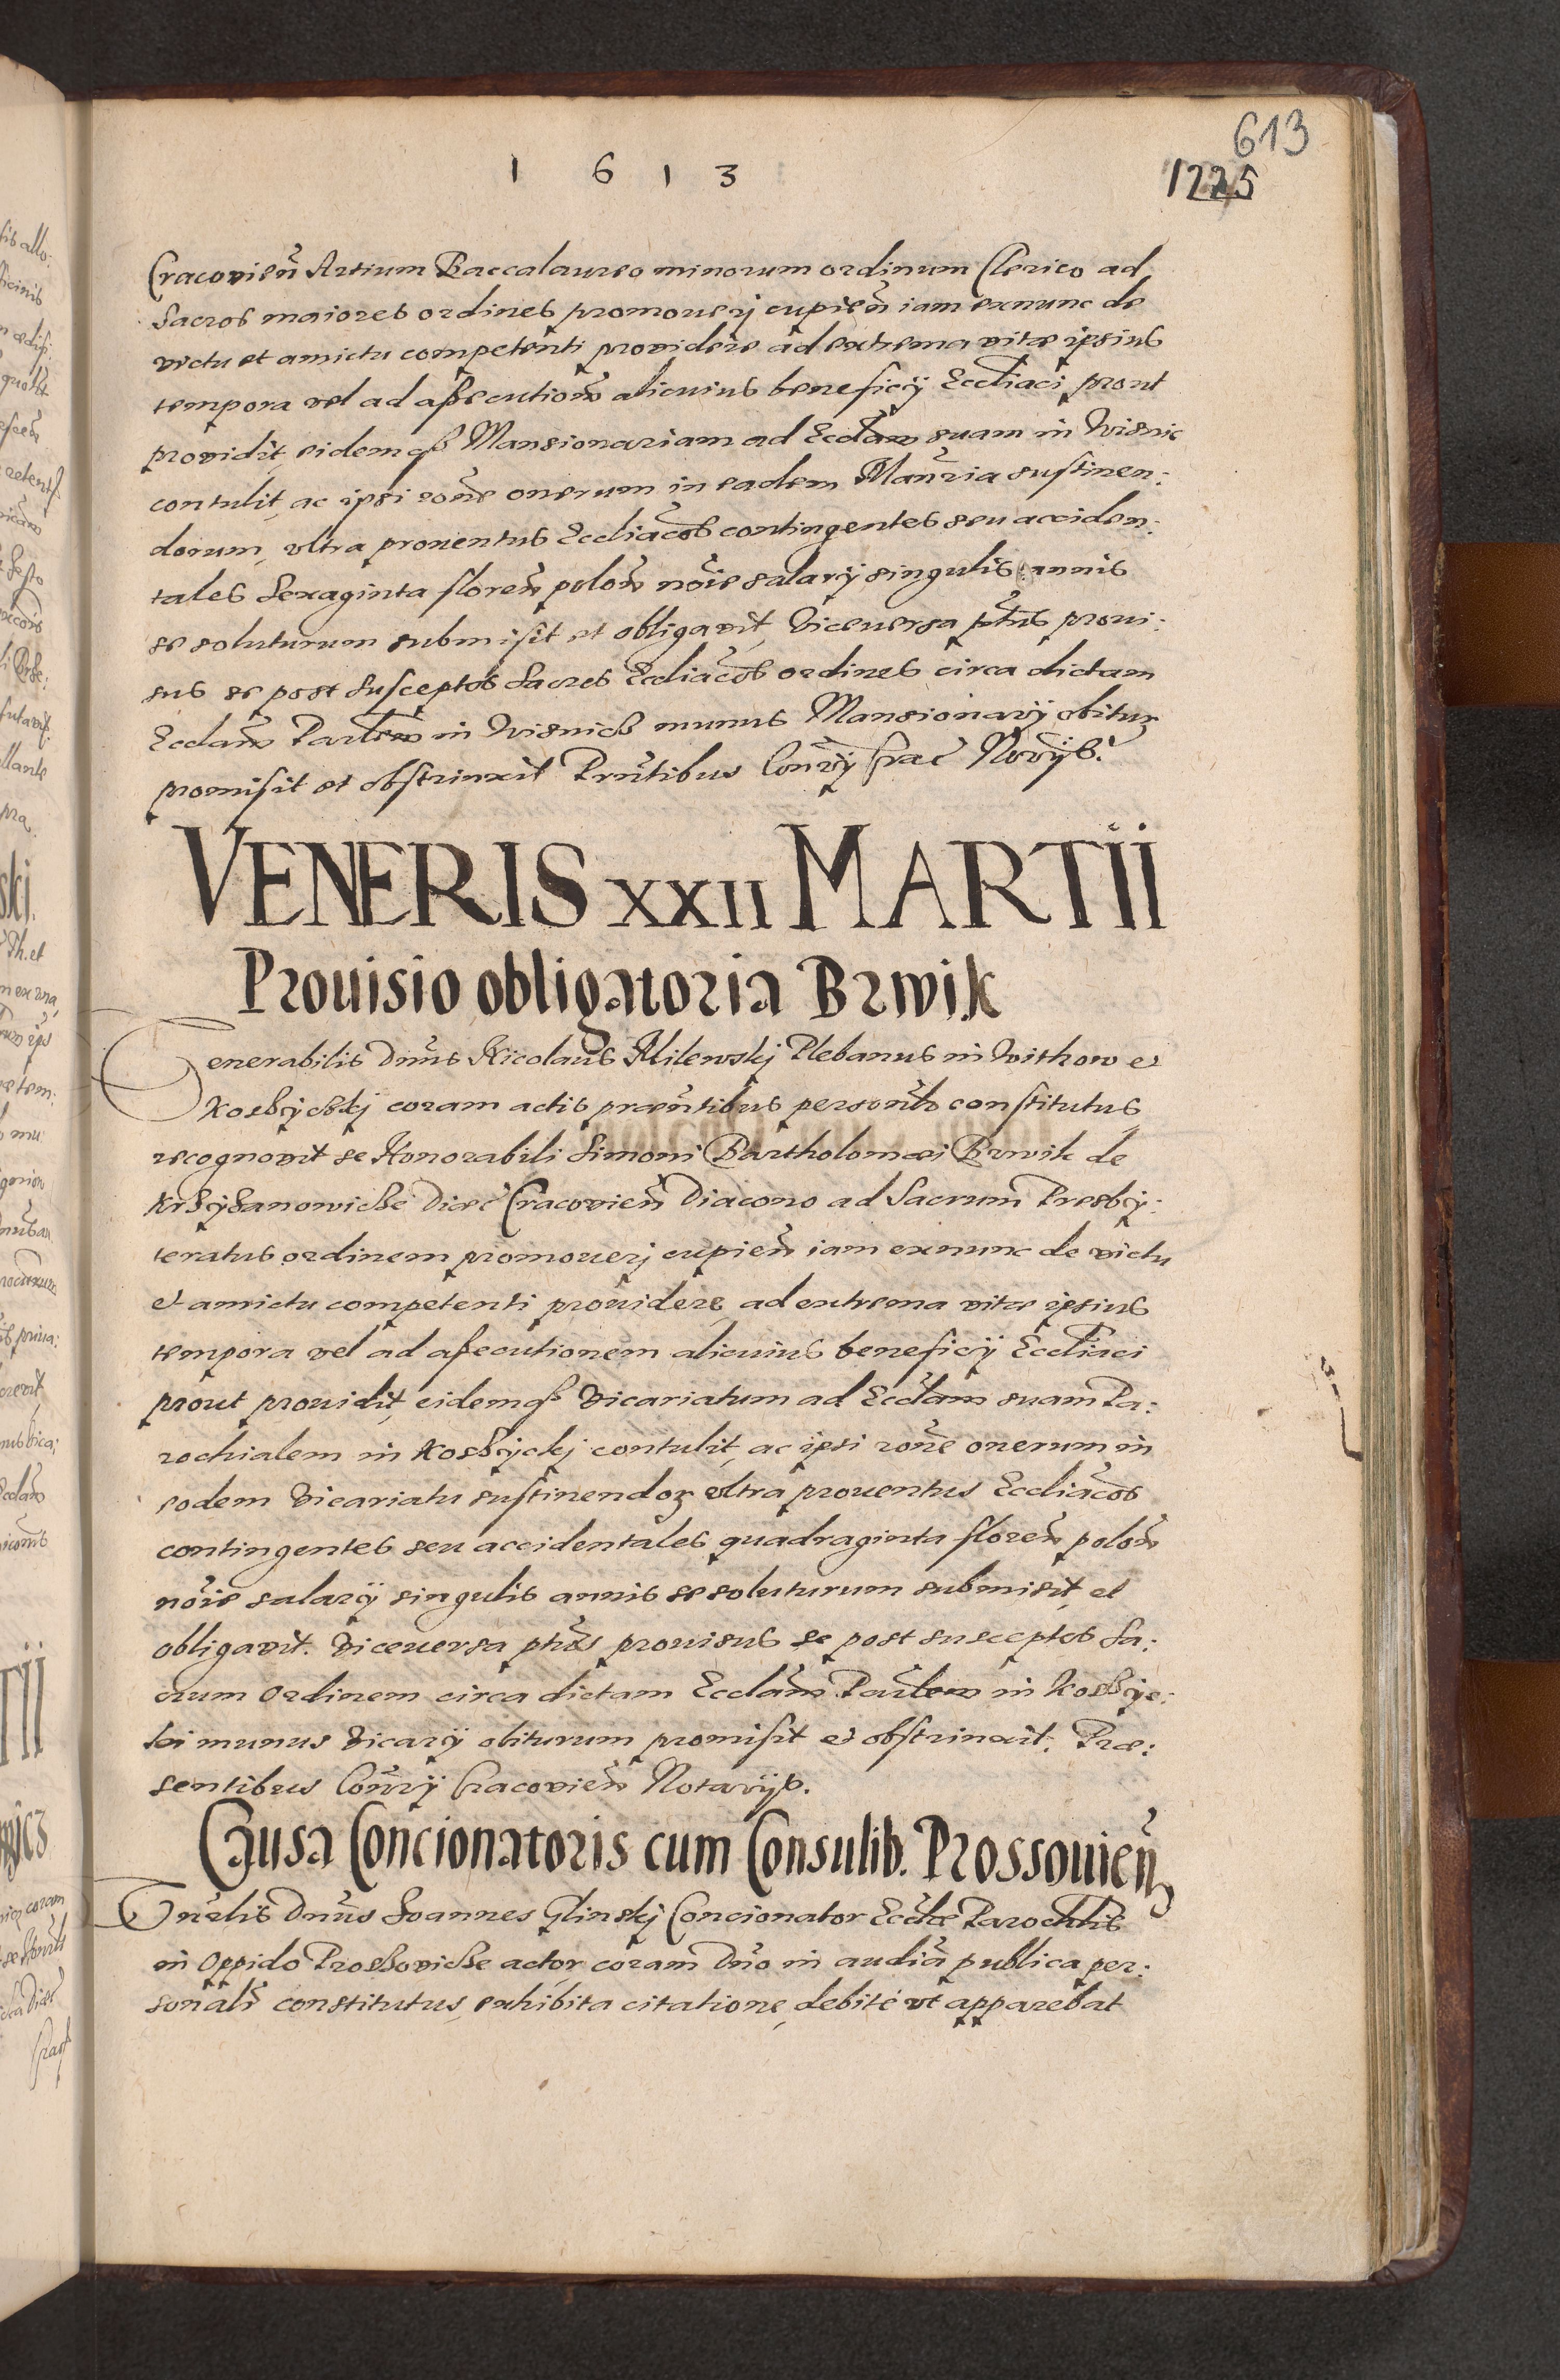 613
1 6 1 3
1225
Cracovien̄ Artium Baccalaureo minorum ordinum Clerico ad
Sacros maiores ordines promouerj cupien̄ iam exnunc de
victu et amictu competenti providere ad extrema vitæ ipsius
tempora vel ad assecutionē alicuius beneficÿ Eccl̄iaci prout
providit, eidemq₃ Mansionariam ad Eccl̄am suam in Visnic
contulit, ac ipsi rōne onerum in eadem Man̄ria sustinen:
dorum, vltra prouentus Eccl̄iacos contingentes seu acciden:
tales Sexaginta floren̄ polon̄ nōie salarÿ singulis annis
se soluturum submisit et obligavit, Viceuersa pt̄us proui:
sus se post susceptos Sacros Eccl̄iacos ordines circa dictam
Eccl̄am Par̄lem in Visnicz munus Mansionarÿ obitur̄
promisit et obstrinxit Prn̄tibus Con̄rÿ Crac̄ No̅rÿs.
VENERIS XXII MARTII
Prouisio obligatoria Brwik
Venerabilis Dn̄us Nicolaus Milewskj Plebanus in Withow et
Kosczyczkj coram actis præn̄tibus person̄lr constitutus
recognovit se Honorabili Simoni Bartholomæi Brwik de
Krzyżanowicze Diæc̄ Cracovien̄ Diacono ad Sacrum Presby:
teratus ordinem promouerj cupien̄ iam exnunc de victu
et amictu competenti prouidere ad extrema vitæ ipsius
tempora vel ad assecutionem alicuius beneficÿ Eccl̄iaci
prout prouidit, eidemq₃ Vicariatum ad Eccl̄am suam Pa:
rochialem in Koszyckj contulit, ac ipsi rōne onerum in
eodem Vicariatu sustinendor̄ vltra prouentus Eccl̄iacos
contingentes seu accidentales quadraginta floren̄ polon̄
nōie salarÿ singulis annis se soluturum submisit, et
obligavit. Viceuersa pt̄us prouisus se post susceptos Sa:
crum Ordinem circa dictam Eccl̄am Par̄lem in Koszyc:
ki munus Vicarÿ obiturum promisit et obstrinxit. Præ:
sentibus Con̄rÿ Cracovien̄ Notarÿs.
Causa Concionatoris cum Consulib. Prossouien̄
Vn̄rlis Dn̄us Joannes Glinskj Concionator Eccl̄æ Parochlis
in Oppido Proszowicze actor coram Dn̄o in audiā publica per:
sonalr̄ constitutus, exhibita citatione, debitè vt apparebat